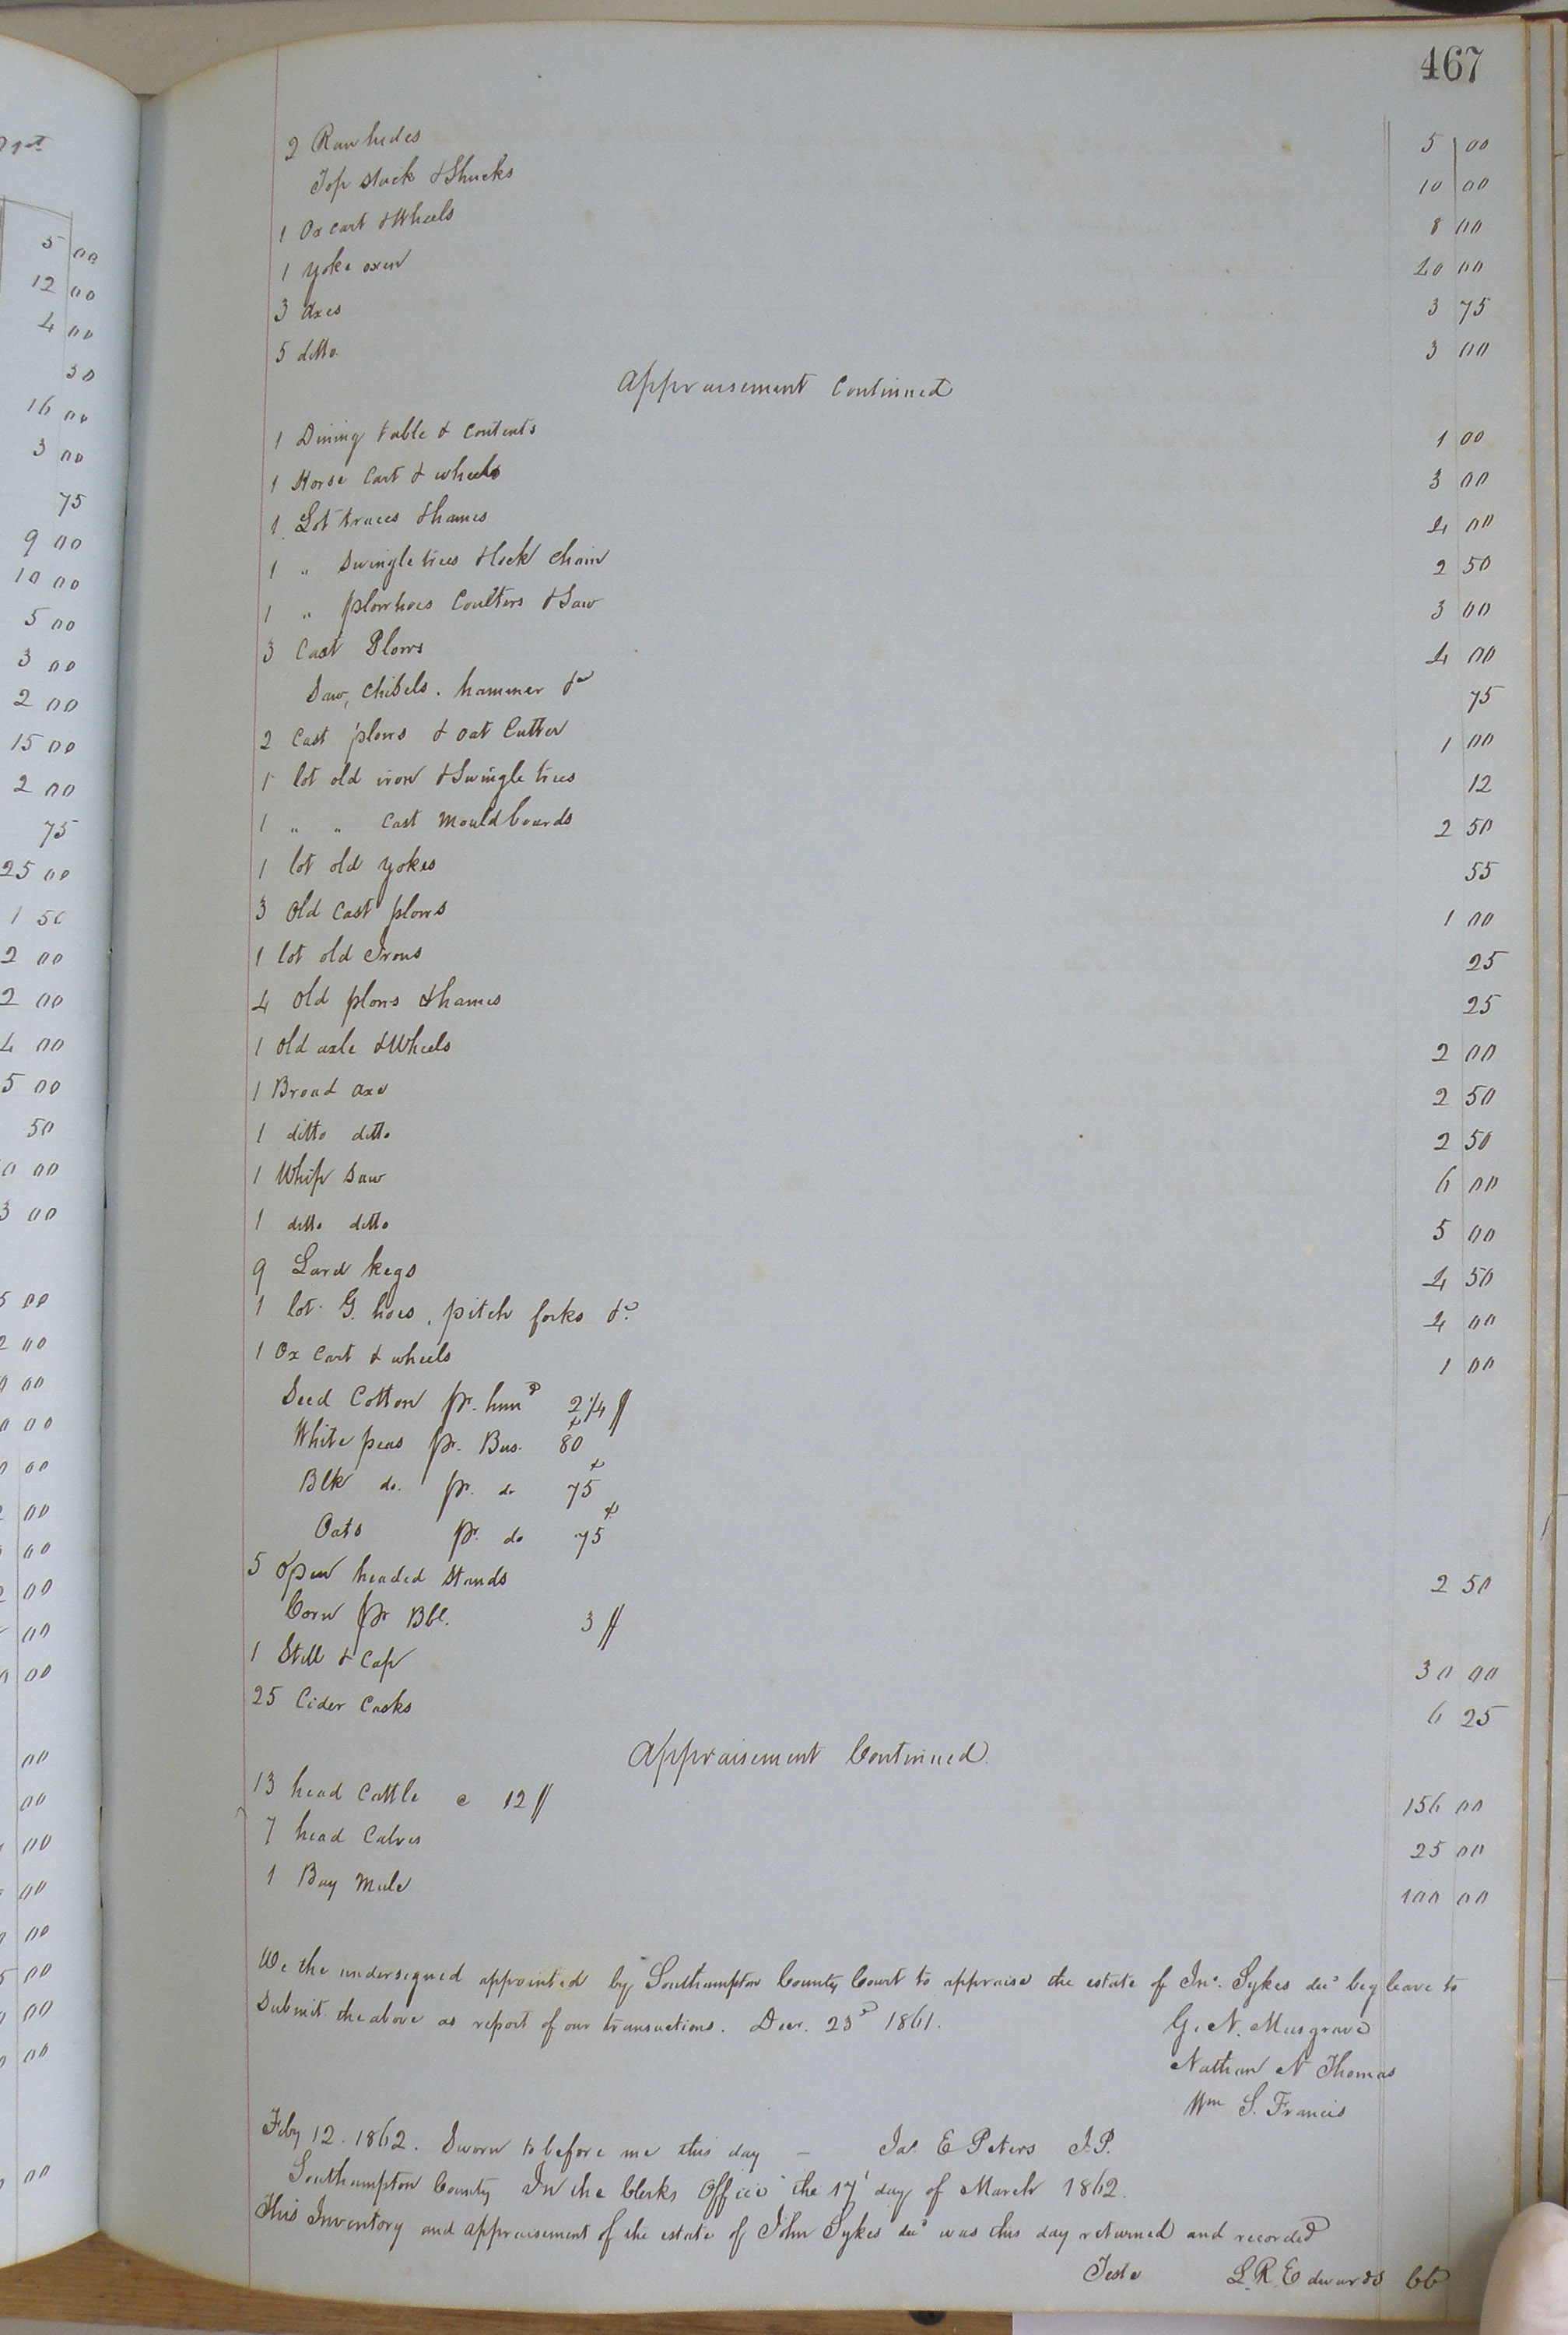 467
2 Rawhides 5 00
Top stack & Shucks 10 00
1 Ox cart & Wheels 8 00
1 yoke oxen 40 00
3 axes 3 75
5 ditto 3 00
Appraisement Continued
1 Dining table & Contents 1 00
1 Horse Cart & wheels 3 00
1 Lot traces & hames 4 00
1 " Swingletrees & lock chain 2 50
1 " plowhoes Coulters & Saw 3 00
3 Cast Plows 4 00
Saw, Chisels. hammer &c 75
2 Cast plows & oat Cutter 1 00
1 lot old iron & Swingle trees 12
1 " " Cast Mouldboards 2 50
1 lot old yokes 55
3 Old Cast plows 1 00
1 lot old Irons 25
4 Old plows & hames 25
1 Old axle & Wheels 2 00
1 Broad axe 2 50
1 ditto ditto 2 50
1 Whip Saw 6 00
1 ditto ditto 5 00
9 Lard kegs 4 50
1 lot G. hoes, pitch forks &c 4 00
1 Ox Cart & wheels 1 00
Seed Cotton pr. hund 2 1/4 //
White peas pr. Bus. 80
Blk do. pr. do 75
Oats pr. do 75
5 Open headed Stands 2 50
Corn pr Bbl. 3 //
1 Still & Cap 30 00
25 Cider Casks 6 25
Appraisement Continued.
13 head Cattle @ 12 // 156 00
7 head Calves 25 00
1 Bay Mule 100 00
We the undersigned appointed by Southampton County Court to appraise the estate of Jno. Sykes decd beg leave to
Submit the above as report of our transactions. Decr. 23d 1861.
G. N. Musgrave
Nathan N Thomas
Wm S. Francis
Feby 12. 1862. Sworn to before me this day — Jas E Peters J.P.
Southampton County In the Clerks Office the 17 day of March 1862.
This Inventory and appraisement of the estate of John Sykes decd was this day returned and recorded
Teste L. R. Edwards CC
5 00
12 00
4 00
50
16 00
3 00
75
9 00
10 00
5 00
3 00
2 00
15 00
2 00
75
25 00
1 50
2 00
2 00
4 00
5 00
50